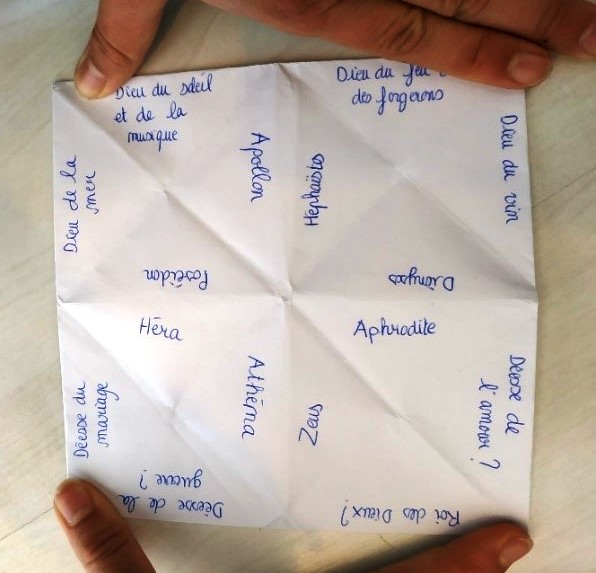 Dieu du soleil
et de la
musique
Dieu du feu &
des forgerons
Dieu de la
mer
Apollon
Héphaïstos
Dieu du vin
Poséïdon
Dionysos
Héra
Aphrodite
Déesse du
mariage
Athéna
Zeus
Déesse de
l'amour ?
Déesse de la
guerre ?
Roi des Dieux ?